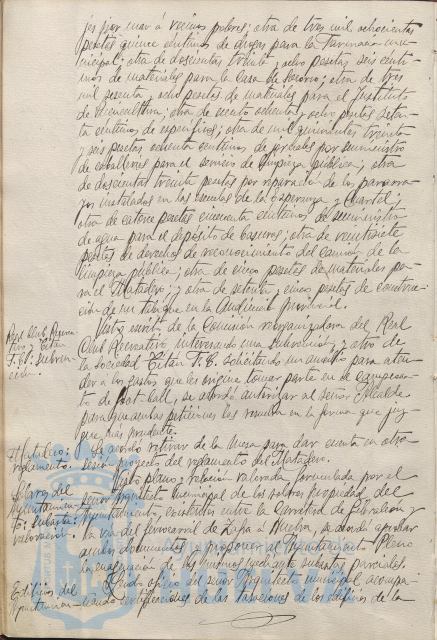 jes por mar á vecinos pobres; otra de tres mil ochocientas
pesetas quince céntimos de drogas para la Farmacia mu-
nicipal; otra de doscientas treinta y ocho pesetas seis cénti-
mos de materiales para la Casa de Socorro; otra de tres
mil sesenta y ocho pesetas de materiales para el Instituto
de ; otra de ciento ochenta y ocho pesetas seten-
ta céntimos de específicos; otra de mil quinientas treinta
y seis pesetas ochenta céntimos de por suministro
de caballerías para el servicio de limpieza pública; otra
de doscientas treinta pesetas por reparación de los pararra-
yos instalados en las escuelas de la Esperanza y Cuartel;
otra de catorce pesetas cincuenta céntimos de suministro
de agua para el depósito de basuras; otra de veintisiete
pesetas de derechos de reconocimiento del camión de la
limpieza pública; otra de cinco pesetas de materiales pa-
ra el Matadero; y otra de setenta y cinco pesetas de construc-
ción de un tabique en la Audiencia provincial.
Real Club Recrea-
tivo y Titán
F. C.: subven-
ción.
Visto escrito de la Comisión reorganizadora del Real
Club Recreativo interesando una subvención, y otro de
la sociedad Titán F. C. solicitando un auxilio para aten-
der á los gastos que les origine tomar parte en el campeona-
to de foot-ball, se acordó autorizar al señor Alcalde
para que ambas peticiones las resuelva en la forma que juz-
gue más prudente.
Matadero:
reglamento.
Se acordó retirar de la Mesa para dar cuenta en otra
sesión proyecto del reglamento del Matadero.
Solares del
Ayuntamien-
to: Subasta:
valoración.
Visto plano y relación valorada formulada por el
señor Arquitecto municipal de los solares propiedad del
Ayuntamiento, existentes entre la Barriada de y
la vía del ferrocarril de Zafra á Huelva, se acordó aprobar
ambos documentos y proponer al Ayuntamiento Pleno
la enagenación de los mismos mediante subastas parciales.
Edificios del
Ayuntamien-
Leído oficio del señor Arquitecto municipal acompa-
ñando certificaciones de las tasaciones de los edificios de la